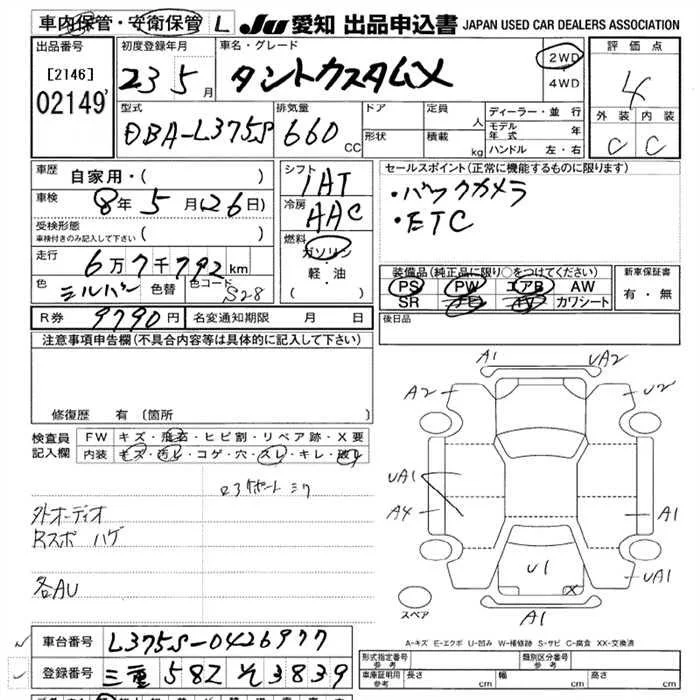 車内保管・安衛保管 L JU 愛知 出品申込書 JAPAN USED CAR DEALERS ASSOCIATION
出品番号
[2146]
02149
初度登録年月
23 5月
車名・グレード
タントカスタムX
2WD
4WD
評価点
4
外装 内装
C C
型式
DBA-L375S
排気量
660 CC
ドア
形状
定員 人
積載 kg
ディーラー・並行
モデル年式 年
ハンドル 左・右
車歴
自家用・( )
車検
8年5月(26日)
受検形態
車検付きのみ記入して下さい ( )
走行
6万7千792km
色
シルバー
色替
色コード
S28
シフト
IAT
冷房
AAC
燃料
ガソリン・
軽・油
( )
セールスポイント(正常に機能するものに限ります)
・バックカメラ
・ETC
装備品(純正品に限り○をつけてください)
PS PW エアB AW
SR カワシート
新車保証書
有・無
R券 9790円
名変通知期限 月 日
後日品
注意事項申告欄(不具合内容等は具体的に記入して下さい)
修復歴 有(箇所 )
検査員記入欄
FW キズ・飛石・ヒビ割・リペア跡・X要
内装 キズ・汚レ・コゲ・穴・スレ・キレ・破レ
外オーディオ
Rスポ ハゲ
各AU
A1 UA2
A2 U2
UA1
A4 A1
U1 X
UA1
A1
スペア
A-キズ E-エクボ U-凹み W-補修跡 S-サビ C-腐食 XX-交換済
車台番号 L375S-0426977
登録番号 三重 582 そ 3839
形式指定番号
参考
類別区分番号
参考
車庫証明用
参考
長さ cm
幅 cm
高さ cm